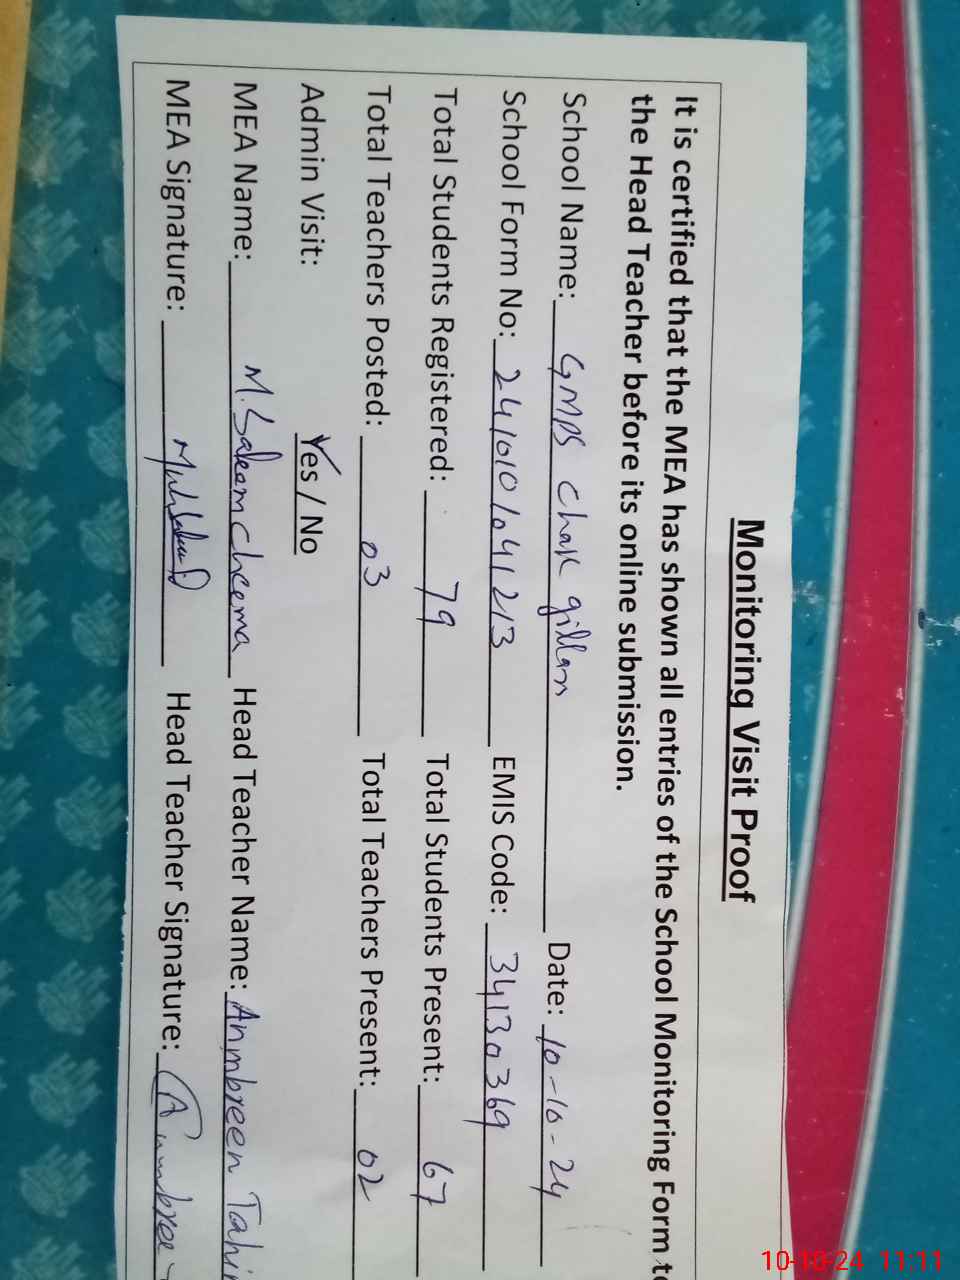 Monitoring Visit Proof
It is certified that the MEA has shown all entries of the School Monitoring Form to
the Head Teacher before its online submission.
School Name: GMPS Chak gillan Date: 10-10-24
School Form No: 241010/041213 EMIS Code: 34130369
Total Students Registered: 79 Total Students Present: 67
Total Teachers Posted: 03 Total Teachers Present: 02
Admin Visit: Yes / No
MEA Name: M. Saleem Cheema Head Teacher Name: Anmbreen Tahir
MEA Signature: Head Teacher Signature:
10-10-24 11:11